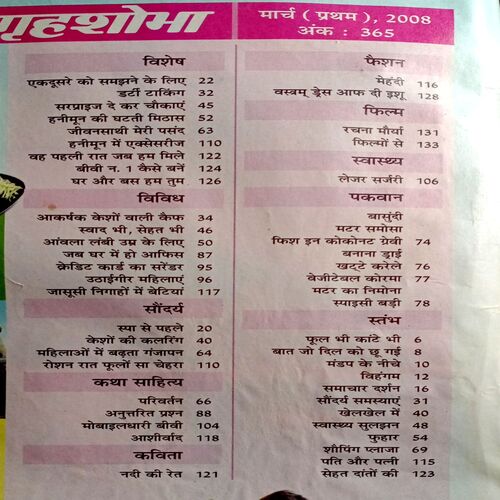 गृहशोभा
मार्च ( प्रथम ), 2008
अंक : 365
विशेष
एकदूसरे को समझने के लिए 22
डर्टी टाकिंग 32
सरप्राइज दे कर चौंकाएं 45
हनीमून की घटती मिठास 52
जीवनसाथी मेरी पसंद 63
हनीमून में एक्सेसरीज 110
वह पहली रात जब हम मिले 122
बीवी न. 1 कैसे बनें 124
घर और बस हम तुम 126
विविध
आकर्षक केशों वाली कैफ 34
स्वाद भी, सेहत भी 46
आंवला लंबी उम्र के लिए 50
जब घर में हो आफिस 87
क्रेडिट कार्ड का सरेंडर 95
उठाईगीर महिलाएं 96
जासूसी निगाहों में बेटियां 117
सौंदर्य
स्पा से पहले 20
केशों की कलरिंग 40
महिलाओं में बढ़ता गंजापन 64
रोशन रात फूलों सा चेहरा 110
कथा साहित्य
परिवर्तन 66
अनुत्तरित प्रश्न 88
मोबाइलधारी बीवी 104
आशीर्वाद 118
कविता
नदी की रेत 121
फैशन
मेहंदी 116
वस्त्रम् ड्रेस आफ दी इशू 128
फिल्म
रचना मौर्या 131
फिल्मों से 133
स्वास्थ्य
लेजर सर्जरी 106
पकवान
बासुंदी
मटर समोसा
फिश इन कोकोनट ग्रेवी 74
बनाना ड्राई
खट्टे करेले 76
वेजीटेबल कोरमा 77
मटर का निमोना
स्पाइसी बड़ी 78
स्तंभ
फूल भी कांटे भी 6
बात जो दिल को छू गई 8
मंडप के नीचे 10
विहंगम 12
समाचार दर्शन 16
सौंदर्य समस्याएं 31
खेलखेल में 40
स्वास्थ्य सुलझन 48
फुहार 54
शौपिंग प्लाजा 69
पति और पत्नी 115
सेहत दांतों की 123